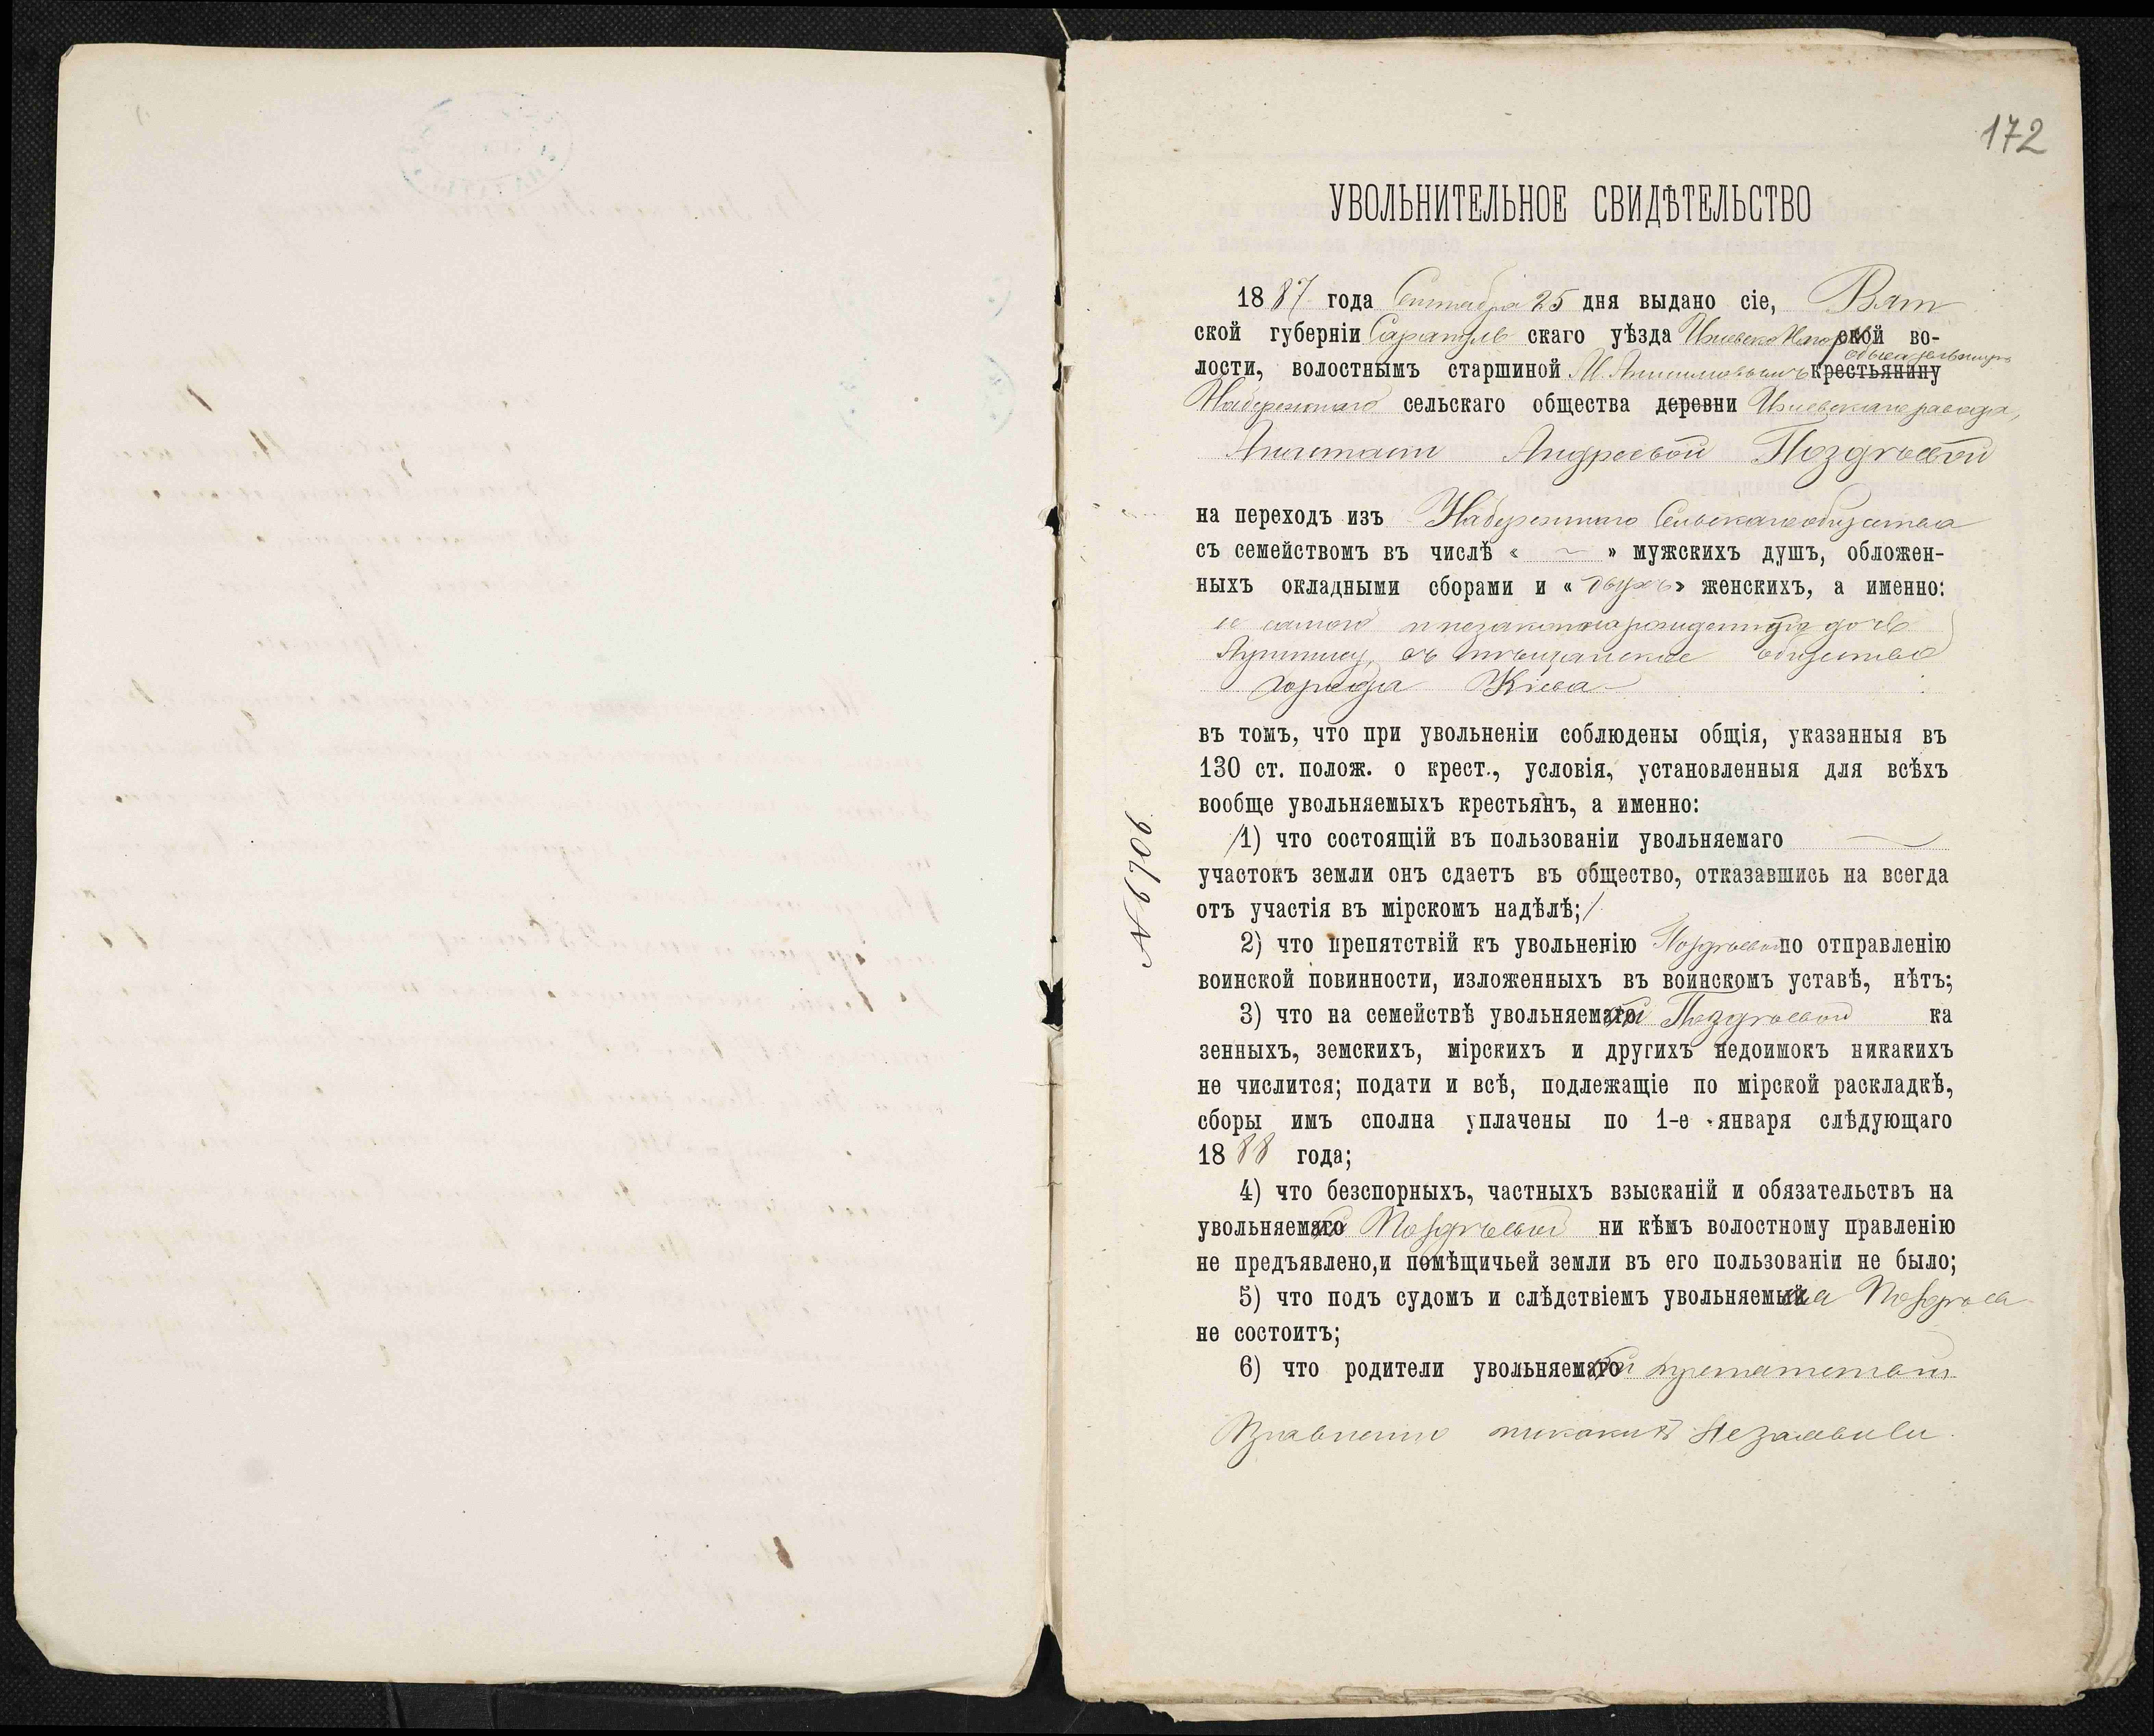 172
УВОЛЬНИТЕЛЬНОЕ СВИДѢТЕЛЬСТВО
1887 года Сентября 25 дня выдано сіе, Вят
ской губерніи Сарапуль скаго уѣзда Ижевско Нагорной во-
обывательницѣ
лости, волостнымъ старшиной И. Анисимовымъ крестьянину
Набережнаго сельскаго общества деревни Ижевскаго завода,
Андреевой Поздѣевой
на переходъ изъ Набережнаго Сельскаго общества
съ семействомъ въ числѣ « ~ » мужскихъ душъ, обложен-
ныхъ окладными сборами и « двухъ » женскихъ, а именно:
ее самой и незаконнорожденную дочь
въ мѣщанское общество
города Кіева
въ томъ, что при увольненіи соблюдены общія, указанныя въ
130 ст. полож. о крест., условія, установленныя для всѣхъ
вообще увольняемыхъ крестьянъ, а именно:
1) что состоящій въ пользованіи увольняемаго
участокъ земли онъ сдаетъ въ общество, отказавшись на всегда
отъ участія въ мірскомъ надѣлѣ;
2) что препятствій къ увольненію Поздѣевой по отправленію
воинской повинности, изложенныхъ въ воинскомъ уставѣ, нѣтъ;
3) что на семействѣ увольняемой Поздѣевой ка
зенныхъ, земскихъ, мірскихъ и другихъ недоимокъ никакихъ
не числится; подати и всѣ, подлежащіе по мірской раскладкѣ,
сборы имъ сполна уплачены по 1-е января слѣдующаго
1888 года;
4) что безспорныхъ, частныхъ взысканій и обязательствъ на
увольняемой Поздѣевой ни кѣмъ волостному правленію
не предъявлено,и помѣщичьей земли въ его пользованіи не было;
5) что подъ судомъ и слѣдствіемъ увольняемая Поздѣева
не состоитъ;
6) что родители увольняемой препятствій
Правленію никакихъ незаявили
№ 6706